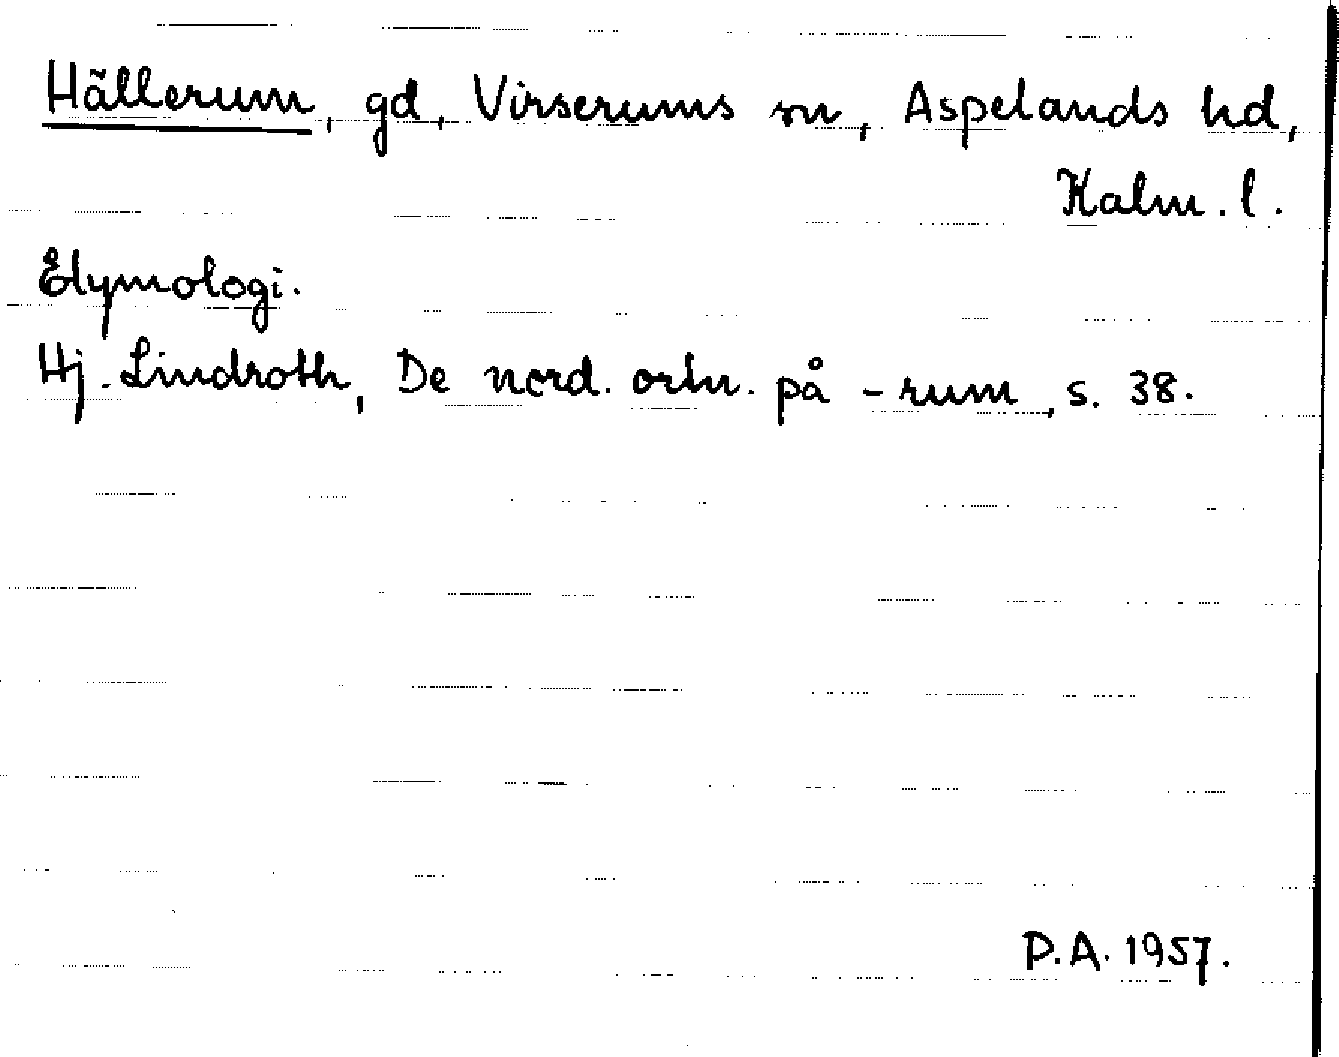 Hällerum, gd, Virserums sn, Aspelands hd,
Kalm. l.
Etymologi.
Hj. Lindroth, De nord. ortn. på -rum, s. 38.
P.A. 1957.